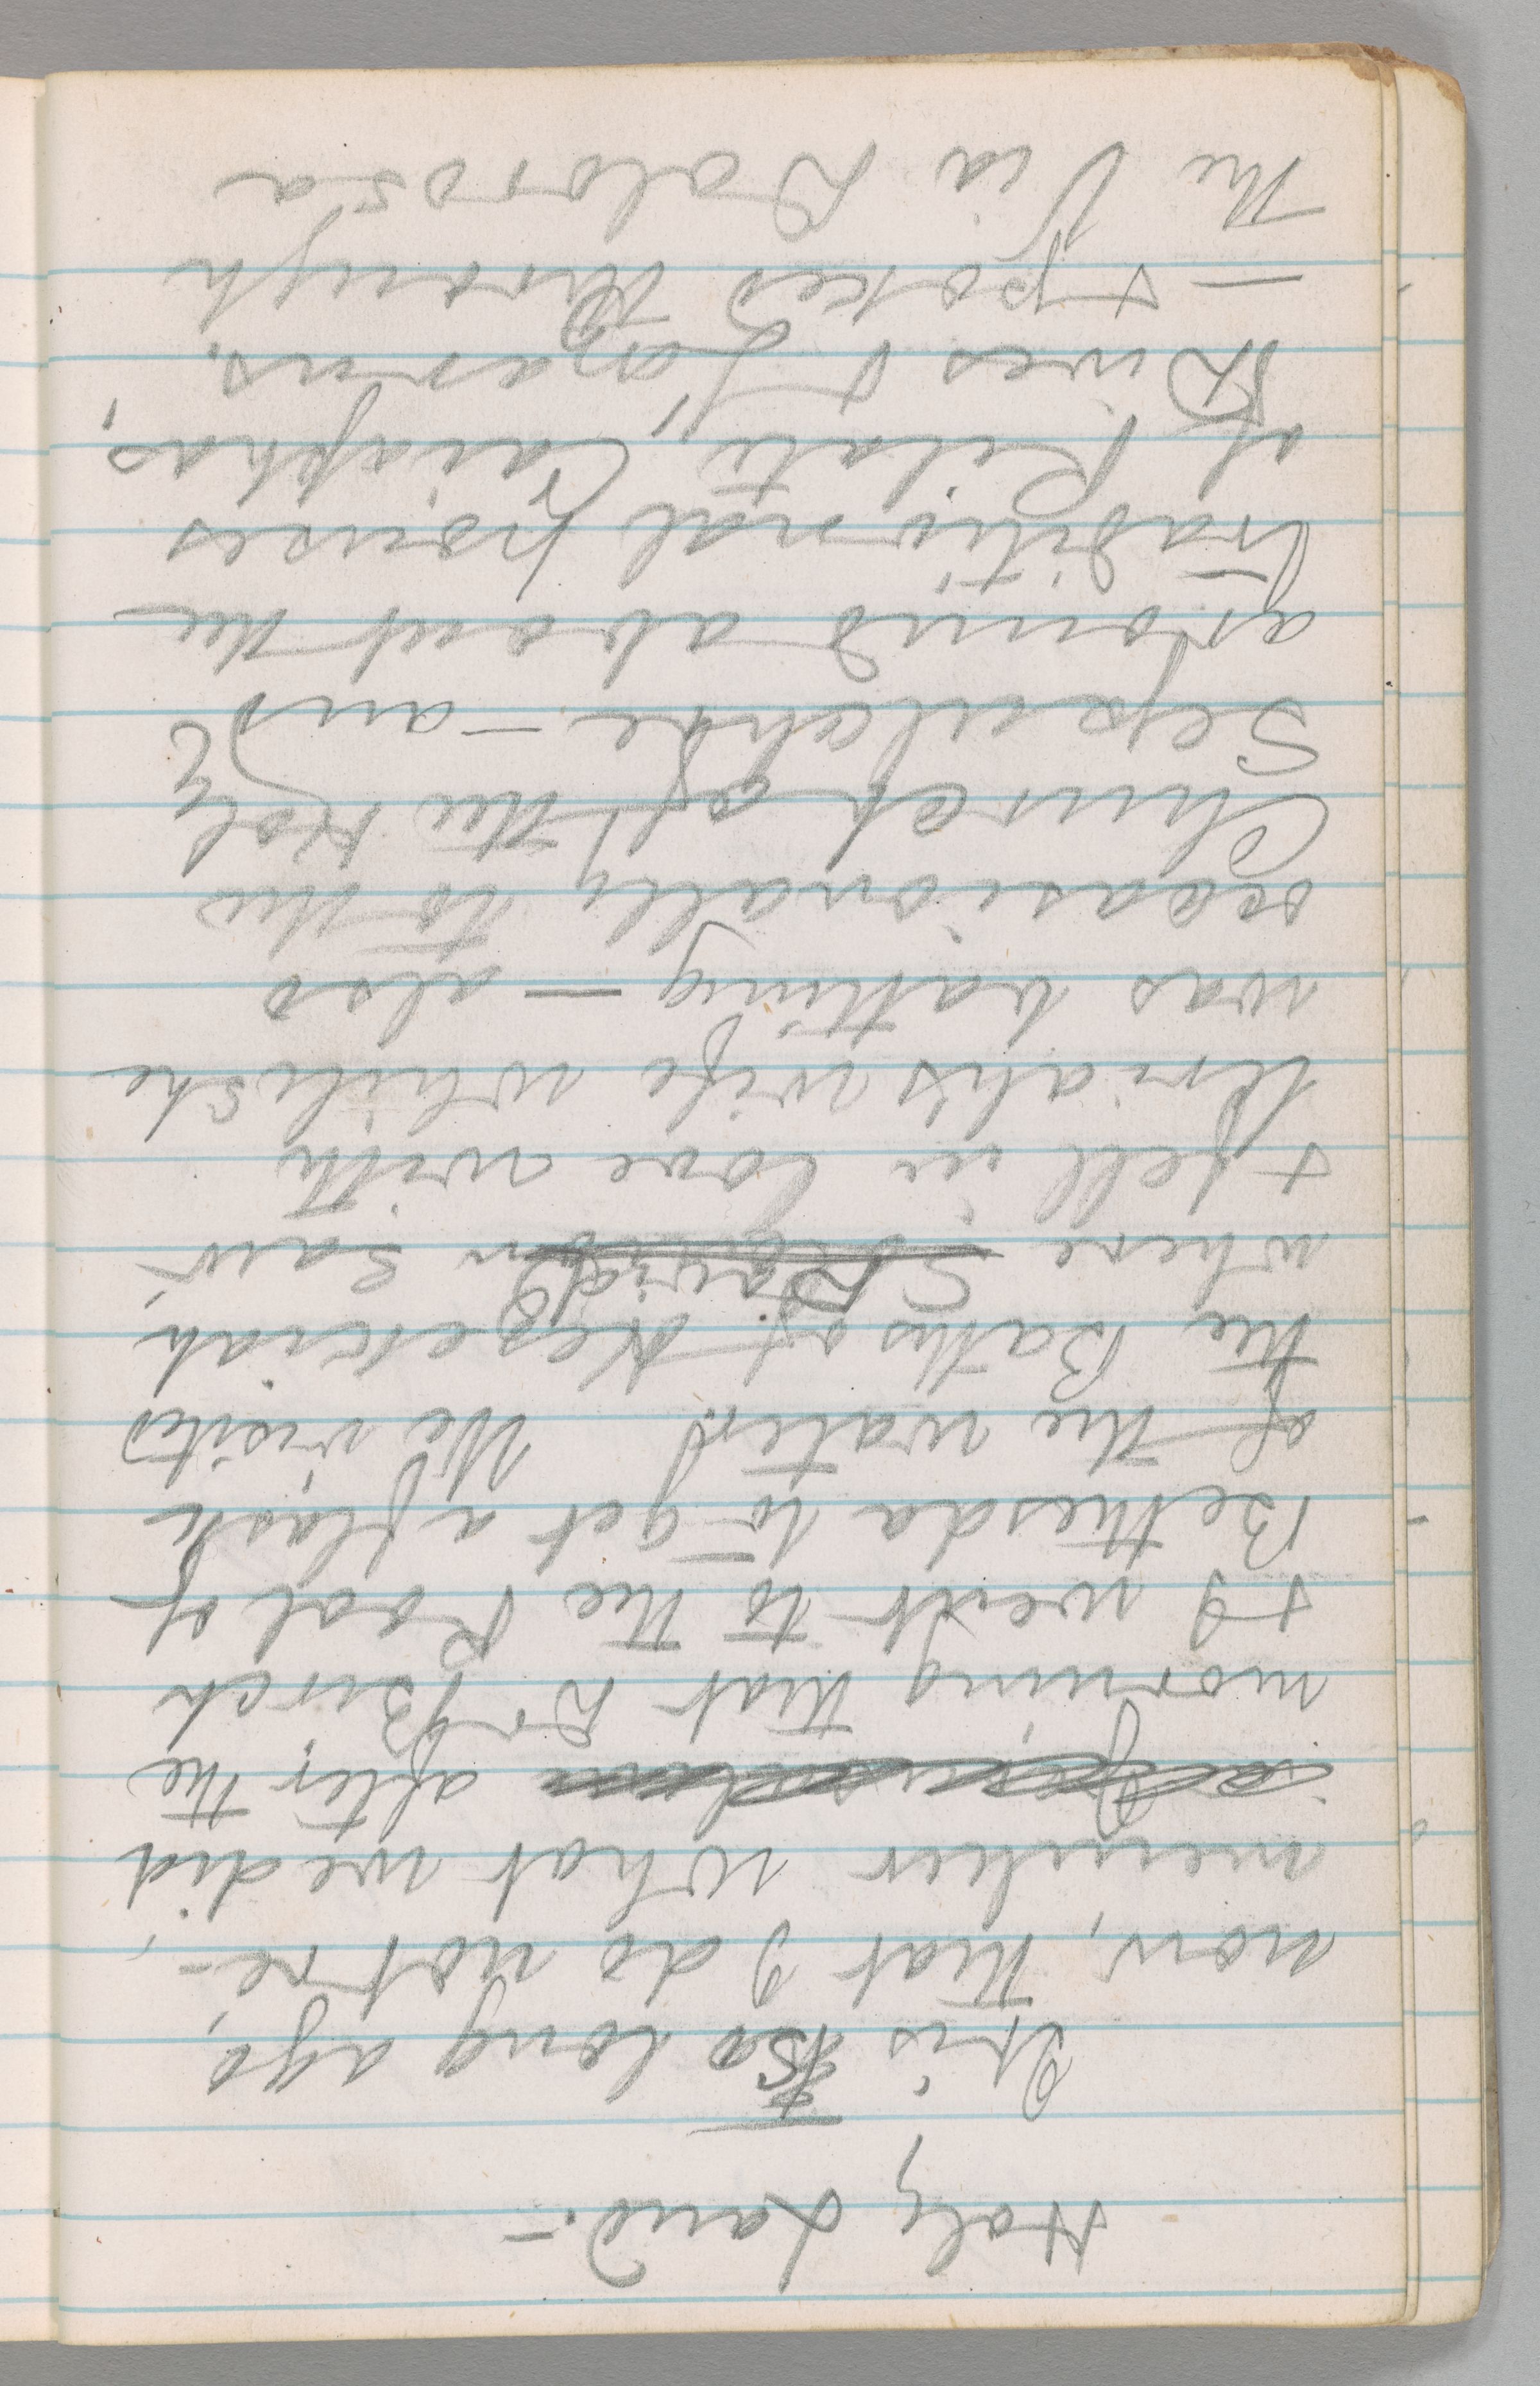 Holy Land.—
It is so long ago,
now, that I do not re-
member what we did
after the
morning that Dr Burch
& I went to the Pool of
Bethesda to get a flask
of the water. We visited
the Baths of Hezekiah
where David saw,
& fell in love with
Uriah's wife while she
was bathing — also
occasionally to the
Church of the Holy
Sepulchre — and
around about the
traditional houses
of Pilate, Caiaphas,
Dives & Lazarus.
— & poked through
the Via Dolorosa